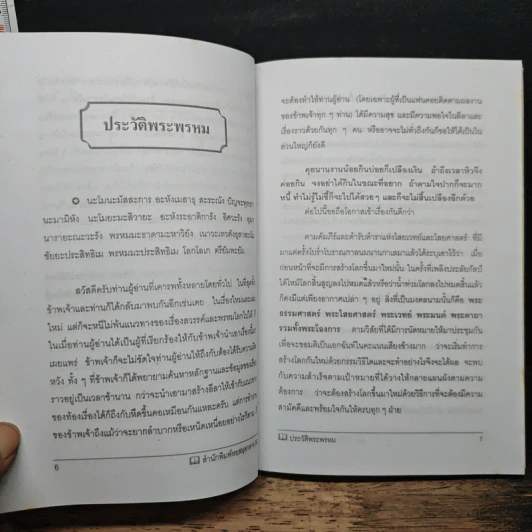 ประวัติพระพรหม
นะโมนะมัสสะการ อะหังเมลายุ สะระณัง
นะมามิหัง นะโมยะมะสิวายะ อะหังระอาทิการัง
นารายะณะวะรัง พรหมมะธาตามะหาวิยัง
ชัยยะประสิทธิเม พรหมมะประสิทธิเม โลกโลเก
สวัสดีครับท่านผู้อ่านที่เคารพทั้งหลายโดยทั่วไป ในที่สุด
ข้าพเจ้าและท่านก็ได้กลับมาพบกันอีกเช่นเคย ในเรื่องใหม่และ
ใหม่ แต่ก็จะหนีไม่พ้นแนวทางของเรื่องสวรรค์และพรหมโลกไปได้
ในเมื่อท่านผู้อ่านได้เป็นผู้ที่เรียกร้องให้กับข้าพเจ้านำเอาเรื่อง
เผยแพร่ ข้าพเจ้าก็จะไม่ขัดใจท่านผู้อ่านให้ถึงกับต้องได้รับความ
หวัง ทั้ง ๆ ที่ข้าพเจ้าก็ได้พยายามค้นหาหลักฐานและข้อมูลของ
ราวอยู่เป็นเวลาช้านาน กว่าจะนำเอามาสร้างสีลาให้เข้ากับ
ของท้องเรื่องได้ก็ถึงกับหืดขึ้นคอเหมือนกันแหละครับ แต่การ
ของข้าพเจ้าถึงแม้ว่าจะยากลำบากหรือเหน็ดเหนื่อยอย่างไรก็ตาม
6
สำนักพิมพ์
จะต้องทำให้ท่านผู้อ่าน (โดยเฉพาะผู้ที่เป็นแฟนคอยติดตามผลงาน
ของข้าพเจ้าทุก ๆ ท่าน) ได้มีความสุข และมีความพอใจในสีลาและ
เรื่องราวด้วยกันทุก ๆ คน หรืออาจจะไม่ทั่วถึงกันก็ขอให้ได้เป็นใน
ส่วนใหญ่ก็ยังดี
คุยนานงานน้อยกินบ่อยก็เปลืองเงิน ถ้าถึงเวลาหิวจึง
ค่อยกิน จงอย่าได้กินในขณะที่อยาก ถ้าตามใจปากก็จะมาก
หนี้ ทำไม่รู้ไม่ชี้ก็จะไปได้สวยๆ และก็จะไม่สิ้นเปลืองอีกด้วย
ต่อไปนี้ขอถือโอกาสเข้าเรื่องกันดีกว่า
ตามคัมภีร์และตำรับตำราแห่งไสยเวทย์และโลยศาสตร์ ที่มี
มาแต่ครั้งโบร่ำโบราณกาลนมนานกาเลมาแล้วได้ระบุเอาไว้ว่า เมื่อ
ก่อนหน้าที่จะมีการสร้างโลกขึ้นมาใหม่นั้น ในครั้งที่เพลิงประลัยกัลป์
ได้ไหม้โลกสิ้นสูญลงไปหมดแล้วหรือว่าน้ำท่วมโลกลงไปหมดสิ้นแล้ว
ก็คงมีแต่เพียงอากาศเปล่า ๆ อยู่ สิ่งที่เป็นมงคลนามนั้นก็คือ พระ
ธรรมศาสตร์ พระไสยศาสตร์ พระเวทย์ พระมนต์ พระคาถา
รวมทั้งพระโองการ ตามวิสัยที่ได้มีการนัดหมายให้มาประชุมกัน
เพื่อจะขอมติเป็นเอกฉันท์ในคะแนนเสียงข้างมาก ว่าจะเริ่มทำการ
สร้างโลกกันใหม่ด้วยกรรมวิธีใดและจะทำอย่างไรจึงจะได้ผล จะพบกับ
ความสำเร็จตามเป้าหมายที่ได้วางให้กลายแผนผังตามความ
ต้องการ ว่าจะต้องสร้างโลกขึ้นมาใหม่ด้วยวิธีการที่จะต้องมีความ
สามัคคีและพร้อมใจกันให้ครบทุก ๆ ฝ่าย
ประวัติพระพรหม
7